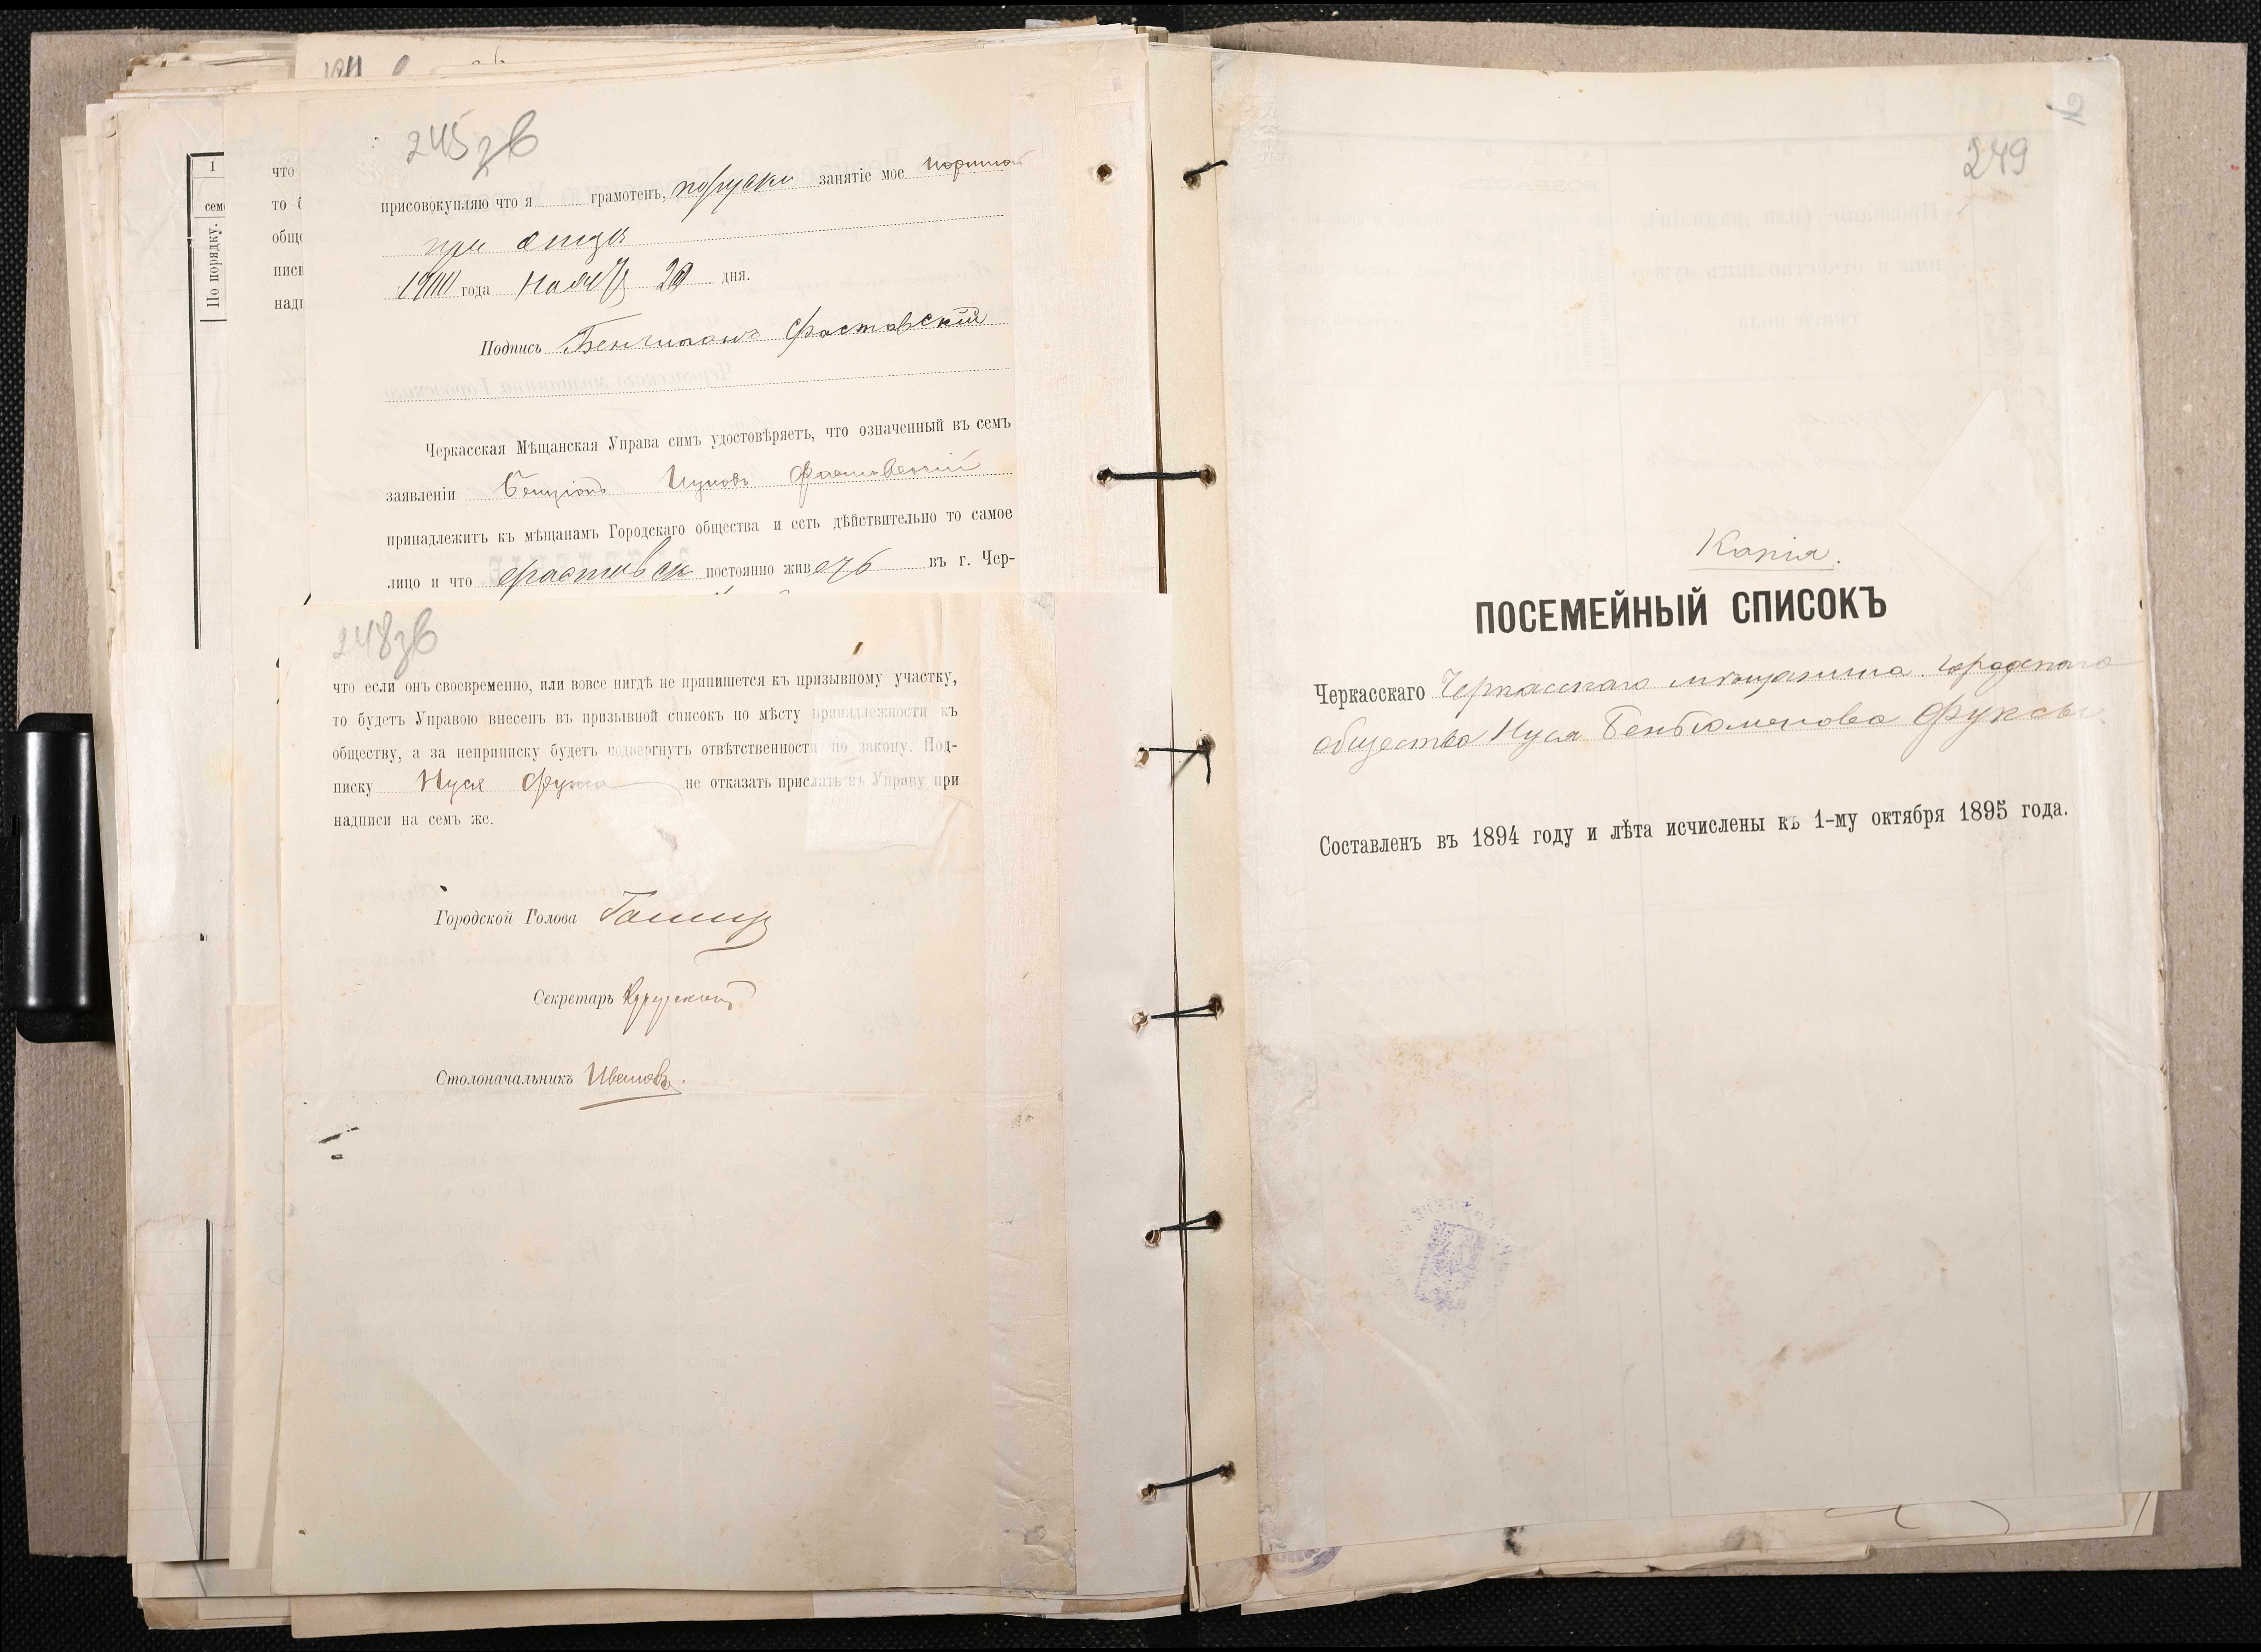 245 зв
присовокупляю что я грамотенъ, поруски занятіе мое
при отцѣ
года 20 дня.
Подпись Фастовскій
Черкасская Мѣщанская Управа симъ удостовѣряетъ, что означенный въ семъ
заявленіи Бенціонъ Фастовскій
принадлежитъ къ мѣщанамъ Городскаго общества и есть дѣйствительно то самое
лицо и что Фастовск постоянно живетъ въ г. Чер-
1
сем
По порядку.
что
то б
обще
писк
надп
248 зв
что если онъ своевременно, или вовсе нигдѣ не припишется къ призывному участку,
то будетъ Управою внесенъ въ призывной списокъ по мѣсту принадлежности къ
обществу, а за неприписку будетъ подвергнутъ отвѣтственности по закону. Под-
писку Нуся Фукса не отказать прислать въ Управу при
надписи на семъ же.
Городской Голова
Секретарь
Столоначальникъ Ивановъ.
249
Копія.
ПОСЕМЕЙНЫЙ СПИСОКЪ
Черкасскаго Черкасскаго мѣщанина Городского
общества Нуся Беньюминова Фуксы
Составленъ въ 1894 году и лѣта исчислены къ 1-му октября 1895 года.